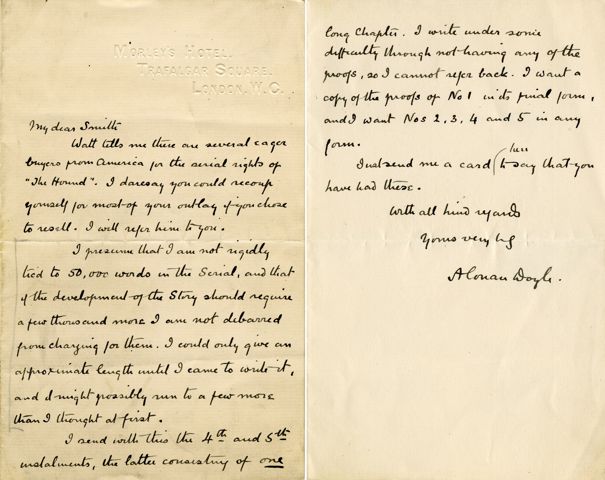 MORLEY'S HOTEL.
TRAFALGAR SQUARE.
LONDON, W.C.
My dear Smith
Watt tells me there are several eager
buyers from America for the serial rights of
"The Hound". I daresay you could recoup
yourself for most of your outlay if you chose
to resell. I will refer him to you.
I presume that I am not rigidly
tied to 50,000 words in the Serial, and that
if the development of the Story should require
a few thousand more I am not debarred
from charging for them. I could only give an
approximate length until I came to write it,
and it might possibly run to a few more
than I thought at first.
I send with this the 4th and 5th
instalments, the latter consisting of one
long Chapter. I write under some
difficulty through not having any of the
proofs, so I cannot refer back. I want a
copy of the proofs of No 1 in its final form,
and I want Nos 2, 3, 4 and 5 in any
form.
Just send me a card (here to say that you
have had these.
With all kind regards
Yours very
A Conan Doyle.